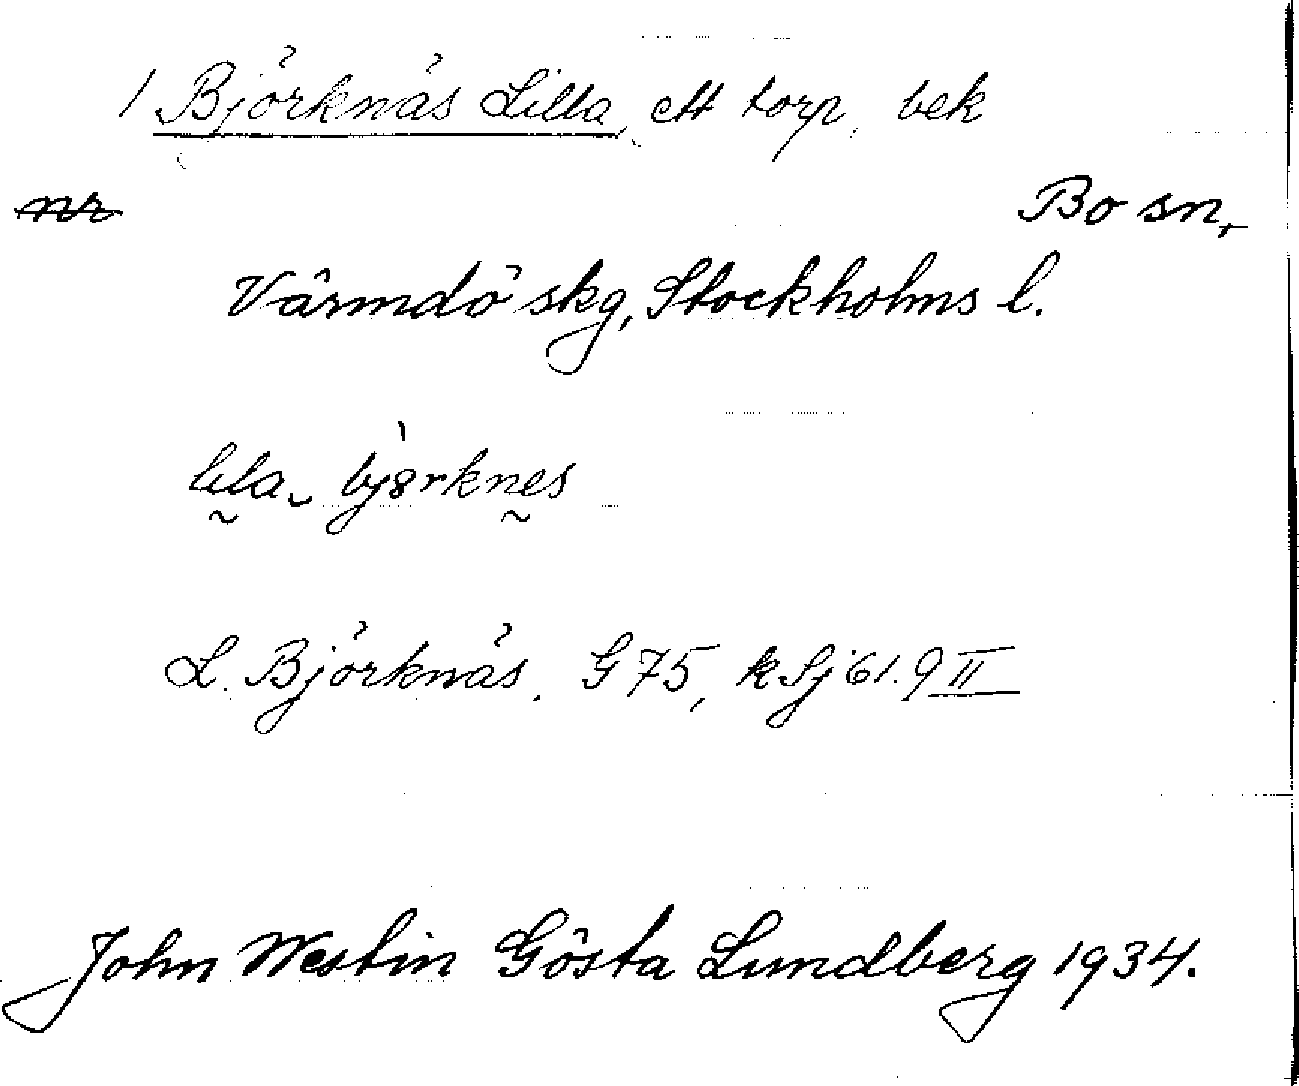 1 Björknäs Lilla, ett torp, bek
nr Bo sn,
Värmdö skg, Stockholms l.
lila bjørknes
L. Björknäs. G 75, k Sj 61. 9 II
John Westin Gösta Lundberg 1934.